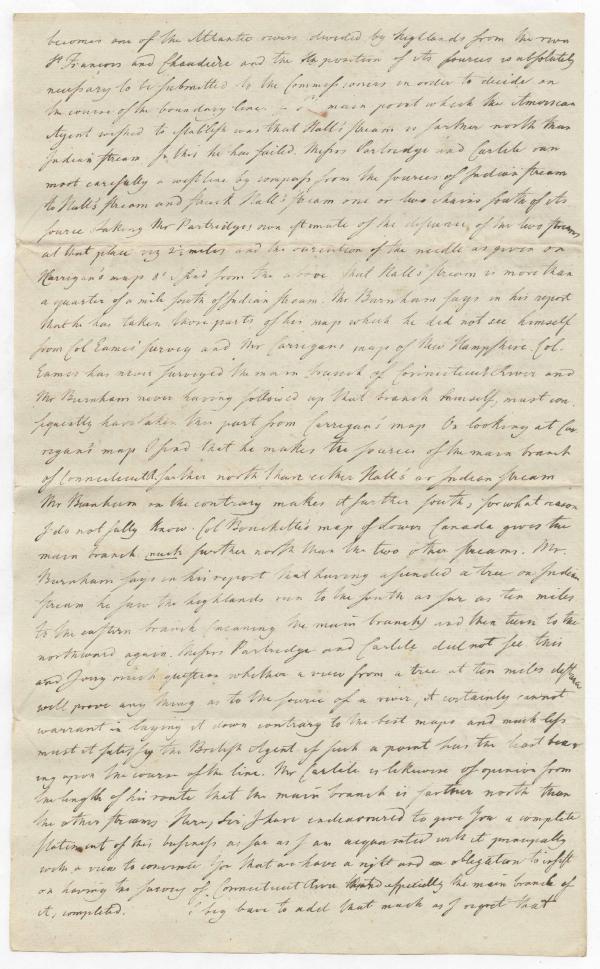 becomes one of the Atlantic rivers divided by highlands from the river
St Francois and Chaudiere and the position of its sources is absolutely
necessary to be submitted to the Commissioners in order to decide on
the course of the boundary line. - main point which the American
Agent wished to establish was that Hall's stream is farther north than
Indian stream In this he has failed. Messrs Partridge and Carlile ran
most carefully a west line by compass from the sources of Indian stream
to Hall's stream and struck Hall's stream one or two chains south of its
source taking Mr Partridge's own estimate of the distance of the two streams
at that place viz 2½ miles and the variation of the needle as given on
Harrigan's map I find from the above that Hall's stream is more than
a quarter of a mile south of Indian stream. Mr Burnham says in his report
that he has taken those parts of his map which he did not see himself
from Col Eames' survey and Mr Carrigans map of New Hampshire. Col.
Eames has never surveyed the main branch of Connecticut River and
Mr Burnham never having followed up that branch himself, must con
sequently have taken this part from Carrigan's map On looking at Car
rigan's map I find that he makes the sources of the main branch
of Connecticutt farther north than either Hall's or Indian stream
Mr Burnham on the contrary makes it further south, for what reason
I do not fully know. Col Bouchette's map of Lower Canada gives the
main branch much further north than the two other streams. Mr.
Burnham says in his report that having ascended a tree on Indian
stream he saw the highlands run to the south as far as ten miles
to the eastern branch (meaning the main branch) and then turn to the
northward again. Messrs Partridge and Carlile did not see this
and I very much question whether a view from a tree at ten miles distance
will prove any thing as to the source of a river, it certainly cannot
warrant in laying it down contrary to the best maps and much less
must it satisfy the British Agent if such a point has the least bear
ing upon the course of the line. Mr Carlile is likewise of opinion from
the length of his route that the main branch is farther north than
the other streams Here, Sir I have endeavoured to give You a complete
statement of this business as far as I am acquainted with it principally
with a view to convince You that we have a right and an obligation to insist
on having the survey of Connecticut River especially the main branch of
it, completed. I beg leave to add that much as I regret that